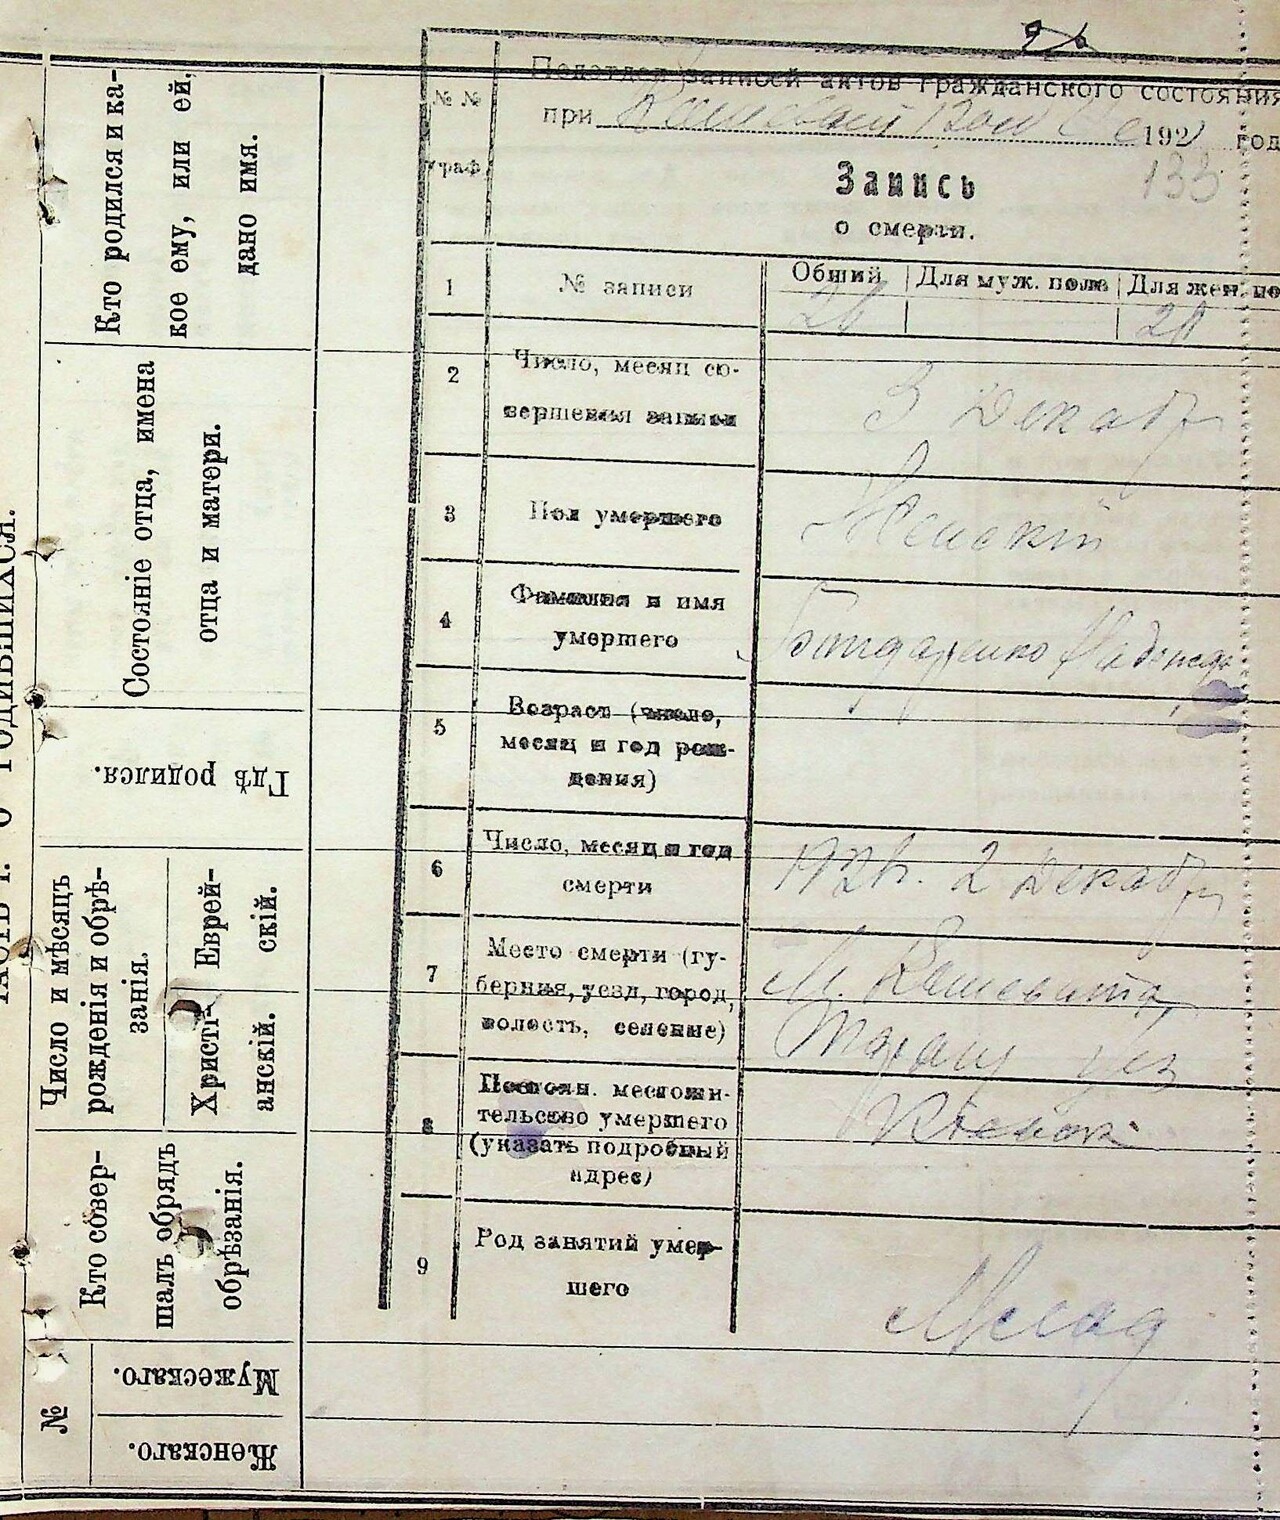 Кто родился и ка-
кое ему, или ей,
дано имя.
Состояніе отца, имена
отца и матери.
Гдѣ родился.
Число и мѣсяцъ
рожденія и обрѣ-
занія.
Еврей-
скій.
Христі-
анскій.
Кто совер-
шалъ обрядъ
обрѣзанія.
№
Мужескаго.
Женскаго.
Подотдел записей актов гражданского состояния
при 1921 год
133
№ №
граф.
Запись
о смерти.
1
№ записи
Общий
Для муж. пола
Для жен. по
2
Число, месяц со-
вершения записи
3 Декабр
3
Пол умершего
Женскій
4
Фамилия и имя
умершего
Бондаренко Надежда
5
Возраст (число,
месяц и год рож-
дения)
6
Число, месяц и год
смерти
2 Декабр
7
Место смерти (гу-
берния, уезд, город,
волость, селение)
М.
уез
8
Постоян. местожи-
тельсвво умершего
(указать подробный
адрес)
9
Род занятий умер-
шего